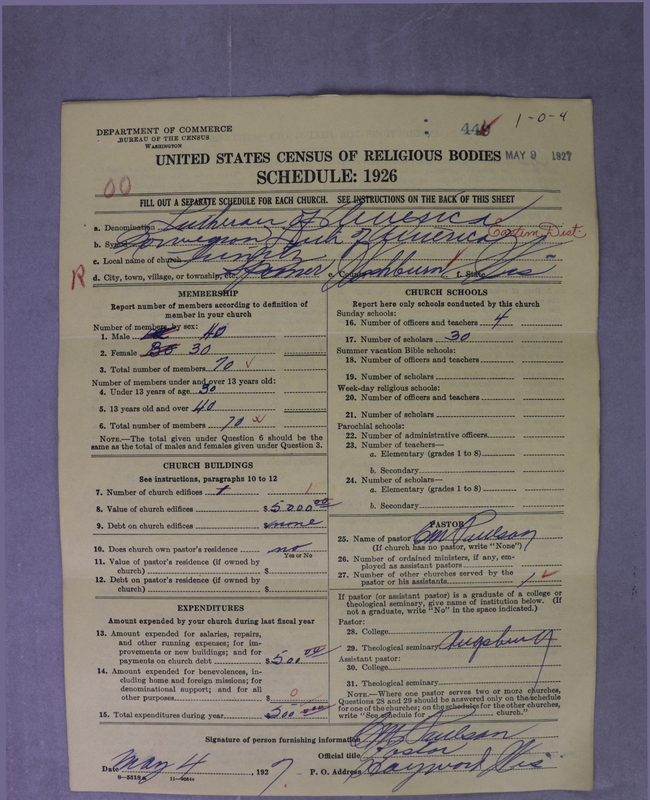 1-0-4
DEPARTMENT OF COMMERCE
BUREAU OF THE CENSUS
WASHINGTON
UNITED STATES CENSUS OF RELIGIOUS BODIES MAY 9 1927
SCHEDULE: 1926
00
FILL OUT A SEPARATE SCHEDULE FOR EACH CHURCH. SEE INSTRUCTIONS ON THE BACK OF THIS SHEET
a. Denomination Lutheran of America
b. Synod Norwegian Luth of America Eastern Dist
c. Local name of church
R
d. City, town, village, or township, etc. e. County Washburn f. State Wis
MEMBERSHIP
Report number of members according to definition of member in your church
Number of members by sex:
1. Male 40
2. Female 30
3. Total number of members 70
Number of members under and over 13 years old:
4. Under 13 years of age 30
5. 13 years old and over 40
6. Total number of members 70
NOTE.—The total given under Question 6 should be the same as the total of males and females given under Question 3.
CHURCH BUILDINGS
See instructions, paragraphs 10 to 12
7. Number of church edifices 1
8. Value of church edifices $5000.00
9. Debt on church edifices $none
10. Does church own pastor's residence no
Yes or No
11. Value of pastor's residence (if owned by church) $
12. Debt on pastor's residence (if owned by church) $
EXPENDITURES
Amount expended by your church during last fiscal year
13. Amount expended for salaries, repairs, and other running expenses; for improvements or new buildings; and for payments on church debt $500.00
14. Amount expended for benevolences, including home and foreign missions; for denominational support; and for all other purposes 0
15. Total expenditures during year $500
CHURCH SCHOOLS
Report here only schools conducted by this church
Sunday schools:
16. Number of officers and teachers 4
17. Number of scholars 30
Summer vacation Bible schools:
18. Number of officers and teachers
19. Number of scholars
Week-day religious schools:
20. Number of officers and teachers
21. Number of scholars
Parochial schools:
22. Number of administrative officers
23. Number of teachers—
a. Elementary (grades 1 to 8)
b. Secondary
24. Number of scholars—
a. Elementary (grades 1 to 8)
b. Secondary
PASTOR
25. Name of pastor CM Paulson
(If church has no pastor, write "None")
26. Number of ordained ministers, if any, employed as assistant pastors
27. Number of other churches served by the pastor or his assistants 1
If pastor (or assistant pastor) is a graduate of a college or theological seminary, give name of institution below. (If not a graduate, write "No" in the space indicated.)
Pastor:
28. College
29. Theological seminary Augsburg
Assistant pastor:
30. College
31. Theological seminary
NOTE.—Where one pastor serves two or more churches, Questions 28 and 29 should be answered only on the schedule for one of the churches; on the schedules for the other churches, write "See schedule for church."
Signature of person furnishing information CM Paulson
Official title Pastor
Date May 4, 1927 P. O. Address Hayward Wis
8-5518a 11-9044a